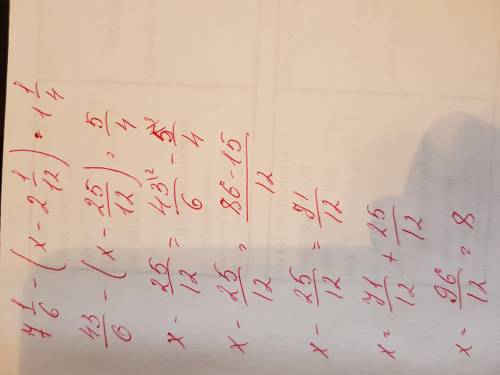 7 1/6 - (x - 2 1/12) = 1 1/4
43/6 - (x - 25/12) = 5/4
x - 25/12 = 43/6 - 5/4
x - 25/12 = 86-15/12
x - 25/12 = 71/12
x = 71/12 + 25/12
x = 96/12 = 8